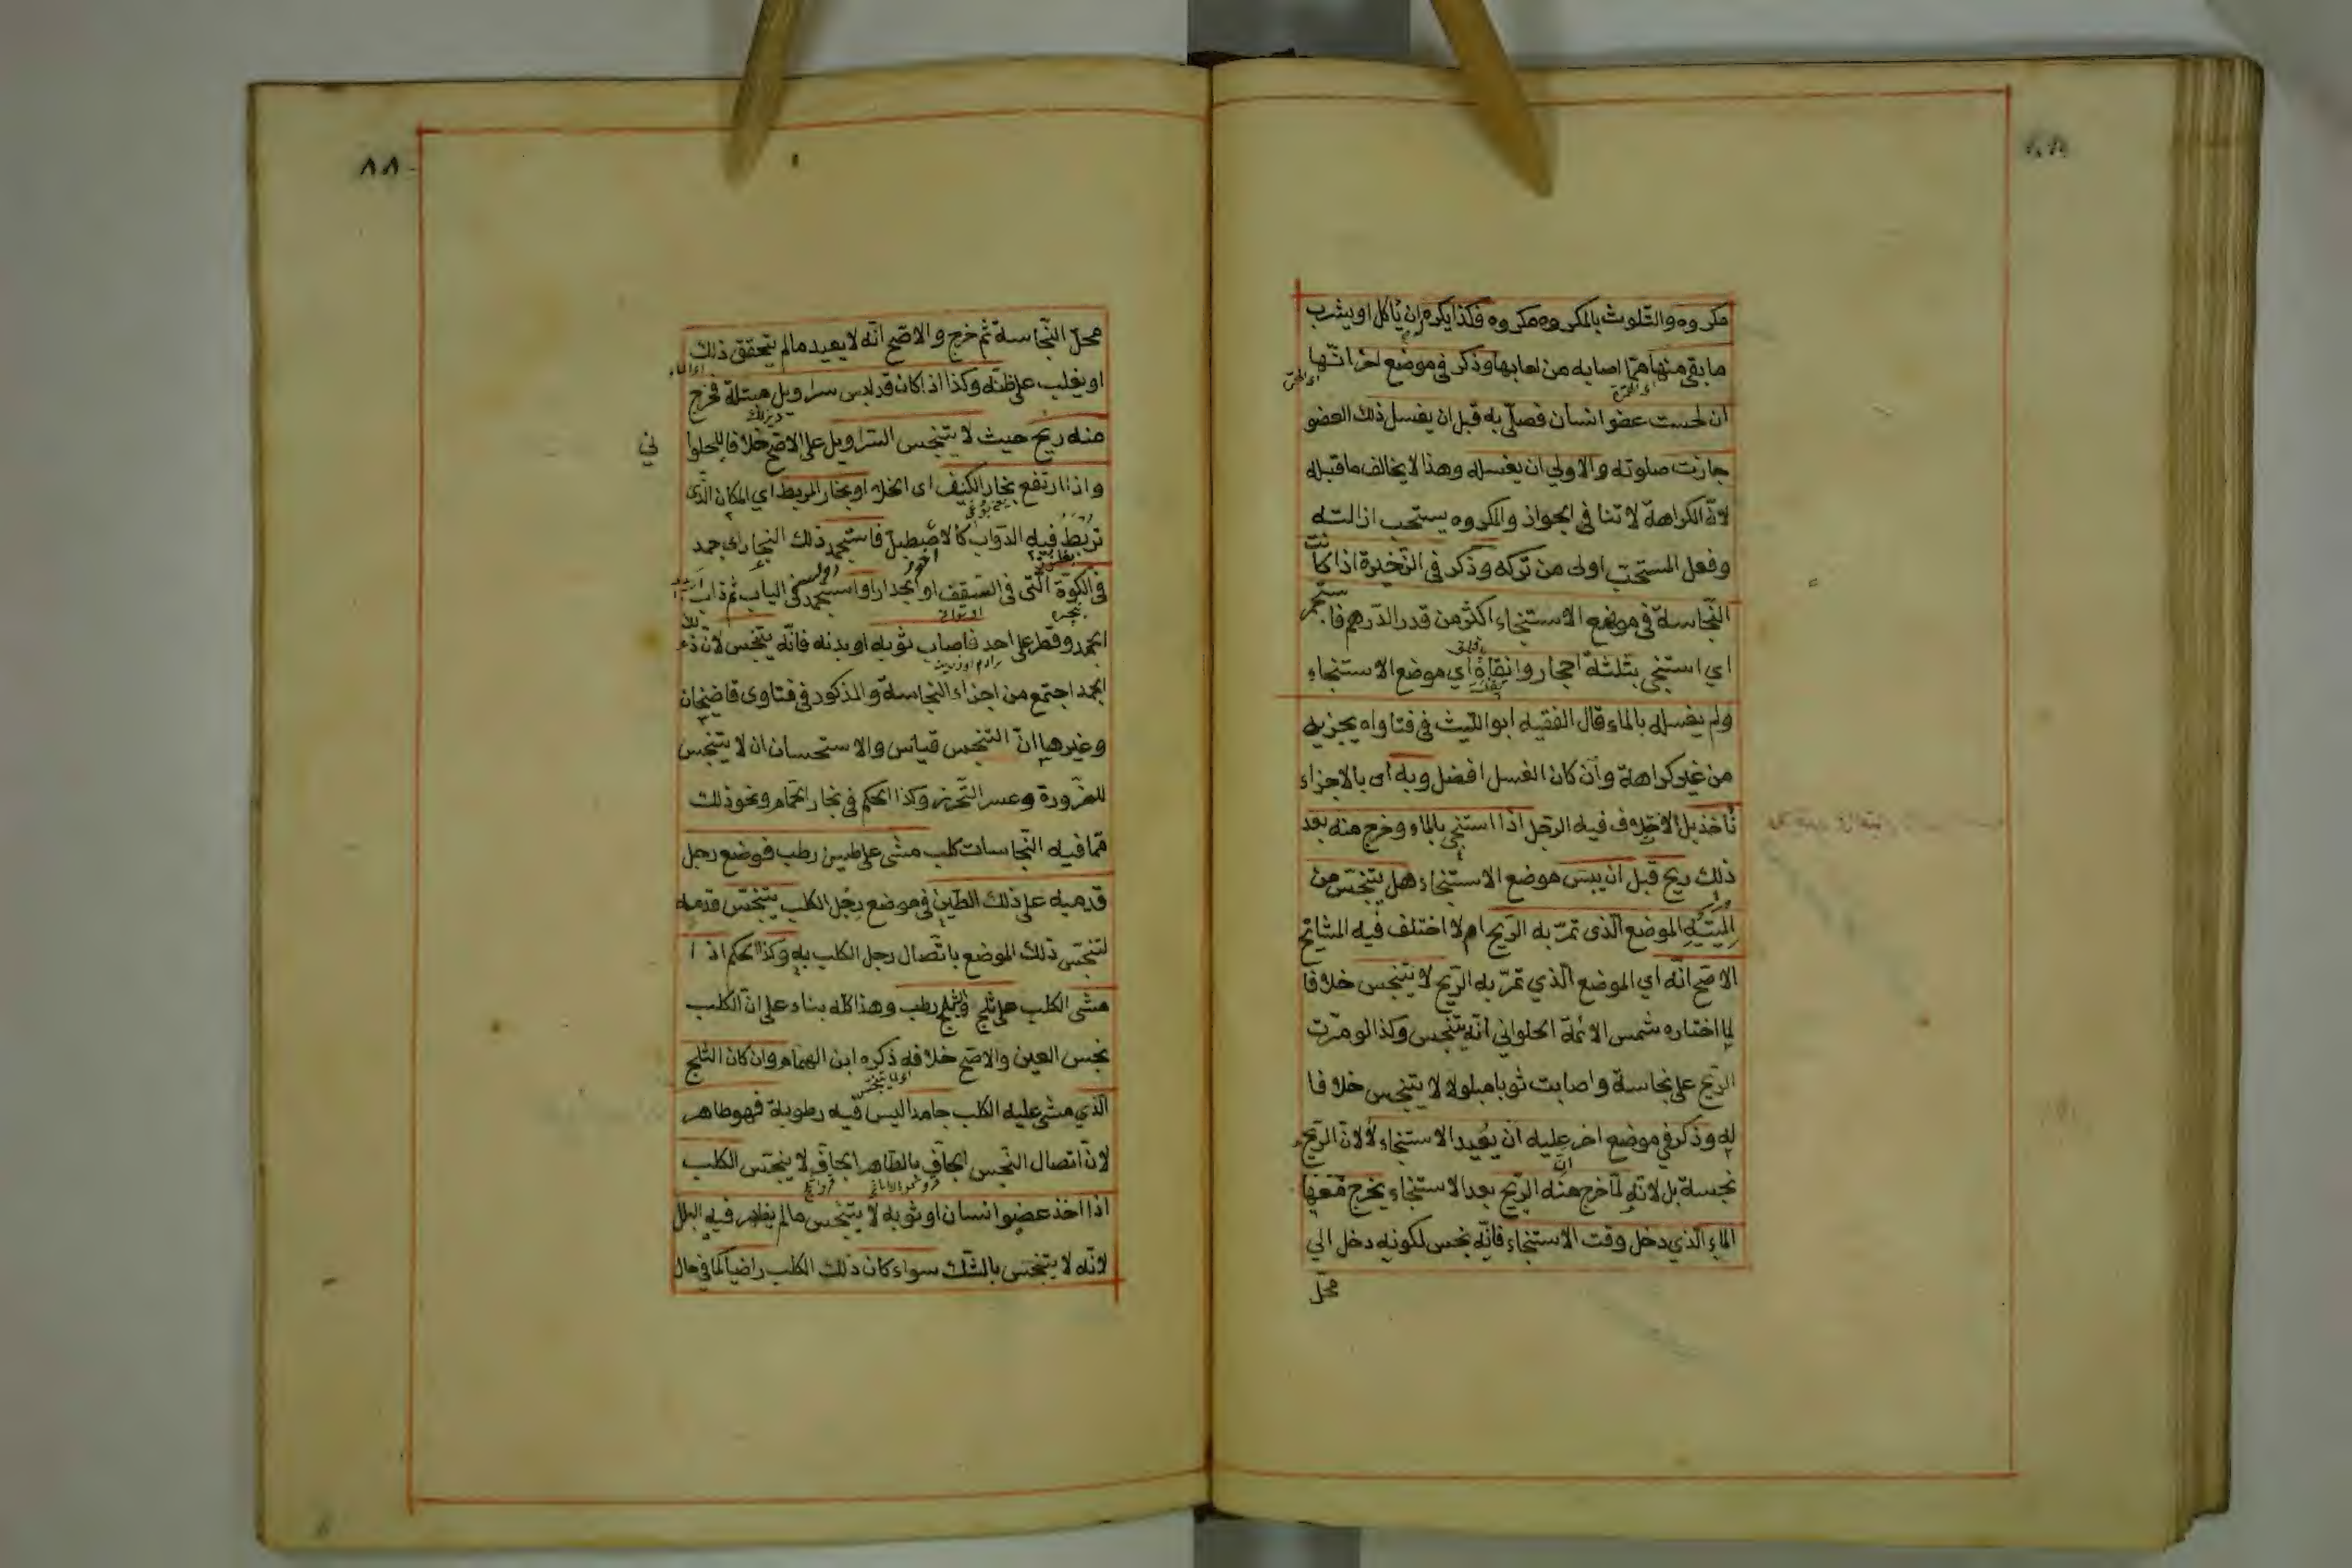 مكروه والتلوث بالمكروه مكروه فكذا يكره ان ياكل او يشرب
ما بقي منها مما اصابه من لعابها وذكر في موضع اخر انها
ان لحست عضو انسان فصلي به قبل ان يغسل ذلك العضو
جازت صلوته والاولي ان يغسله وهذا لا يخالف ما قبله
لان الكراهة لا تنافي الجواز والمكروه يستحب ازالته
وفعل المستحب اولى من تركه وذكر في الذخيرة اذا كانت
النجاسة في موضع الاستنجاء اكثر من قدر الدرهم فاستجمر
اي استنجى بثلثة احجار وانقاه اي موضع الاستنجاء
ولم يغسله بالماء قال الفقيه ابو الليث في فتاواه يجزيه
من غير كراهة وان كان الغسل افضل وبه اي بالاجزاء
ناخذ بلا خلاف فيه الرجل اذا استنجى بالماء وخرج منه بعد
ذلك ريح قبل ان يبس موضع الاستنجاء هل يتنجس من
الموضع الذى تمر به الريح ام لا اختلف فيه المشايخ
الاصح انه اي الموضع الذي تمر به الريح لا يتنجس خلافا
لما اختاره شمس الائمة الحلواني انه يتنجس وكذا لو مرت
الريح على نجاسة واصابت ثوبا مبلولا لا يتنجس خلافا
له وذكر في موضع اخر عليه ان يعيد الاستنجاء لا لان الريح
نجسة بل لانه لما خرج منه الريح بعد الاستنجاء يخرج معها
الماء الذي دخل وقت الاستنجاء فانه نجس لكونه دخل الي
محل
٨٨
محل النجاسة ثم خرج والاصح انه لا يعيد مالم يتحقق ذلك
او يغلب على ظنه وكذا اذا كان قد لبس سراويل مبتلة فخرج
منه ريح حيث لا يتنجس السراويل على الاصح خلافا للحلوا
ني
واذا ارتفع بخار الكنيف اى الخلاء او بخار المربط اي المكان الذى
تربط فيه الدواب كالاصطبل فاستجمد ذلك البخار اي جمد
في الكوة التى في السقف او الجدار او استجمد في الباب ثم ذاب
الجمد وقطر على احد فاصاب ثوبه او بدنه فانه يتنجس لان ذلك
الجمد اجتمع من اجزاء النجاسة والمذكور في فتاوى قاضيخان
وغيرها ان التنجس قياس والاستحسان ان لا يتنجس
للضرورة وعسر التحرز وكذا الحكم في بخار الحمام ونحو ذلك
مما فيه النجاسات كلب مشى على طين رطب فوضع رجل
قدميه على ذلك الطين في موضع رجل الكلب يتنجس قدمه
لتنجس ذلك الموضع باتصال رجل الكلب به وكذا الحكم اذا
مشى الكلب على ثلج والثلج رطب وهذا كله بناء على ان الكلب
نجس العين والاصح خلافه ذكره ابن الهمام وان كان الثلج
الذي مشى عليه الكلب جامدا ليس فيه رطوبة فهو طاهر
لان اتصال النجس الجاف بالطاهر الجاف لا ينجس الكلب
اذا اخذ عضو انسان او ثوبه لا يتنجس مالم يظهر فيه البلل
لانه لا يتنجس بالشك سواء كان ذلك الكلب راضيا كما في حال